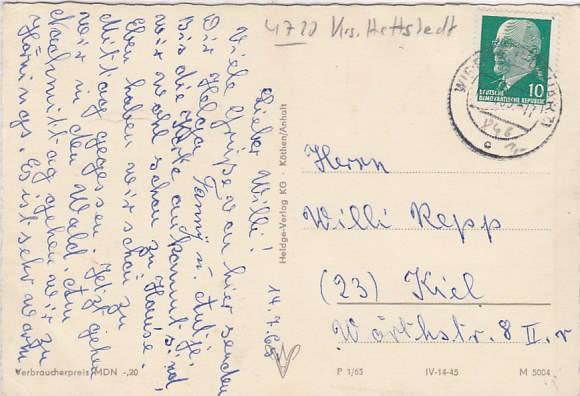 4720 Krs. Hettstedt
10
DEUTSCHE
DEMOKRATISCHE REPUBLIK
14.7.65
Lieber Willi!
Viele Grüße von hier senden
Dir Helga, Fanny u. Antje.
Bis die Karte ankommt sind
wir wohl schon zu Hause.
Eben haben wir schon zu
Mittag gegessen. Jetzt gehen
wir in den Wald. Am
Nachmittag gehen wir zu
Hänings. Es ist sehr warm
Heldge-Verlag KG · Köthen/Anhalt
Herrn
Willi Repp
(23) Kiel
Wörthstr. 8 II. r
Verbraucherpreis MDN -,20
P 1/65
IV-14-45
M 5004